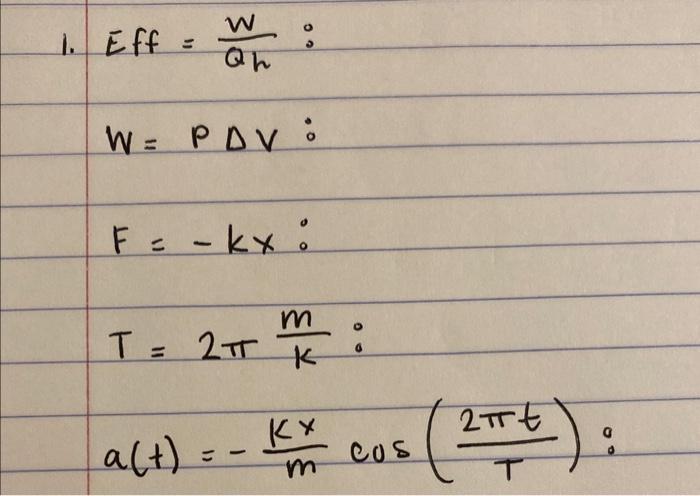 1. Eff = W/Qh :
W = P Δ V :
F = - kx :
T = 2π m/k :
a(t) = - Kx/m cos (2πt/T) :